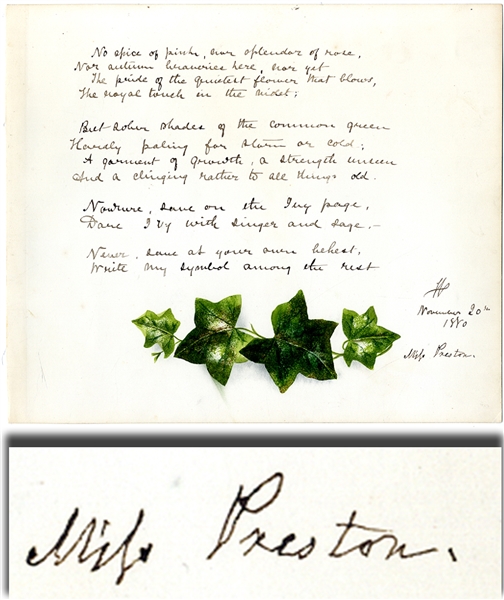 No spice of pinks, nor splendor of rose,
Nor autumn braveries here, nor yet
The pride of the quietest flower that blows,
The royal touch in the violet;
But sober shades of the common green
Hardly paling for storm or cold;
A garment of growth, a strength unseen
And a clinging rather to all things old.
Nowhere, save on the Ivy page,
Dare I vy with singer and sage,—
Never, save at your own behest,
Write my symbol among the rest
November 20th
1880
Miss Preston.
Miss Preston.